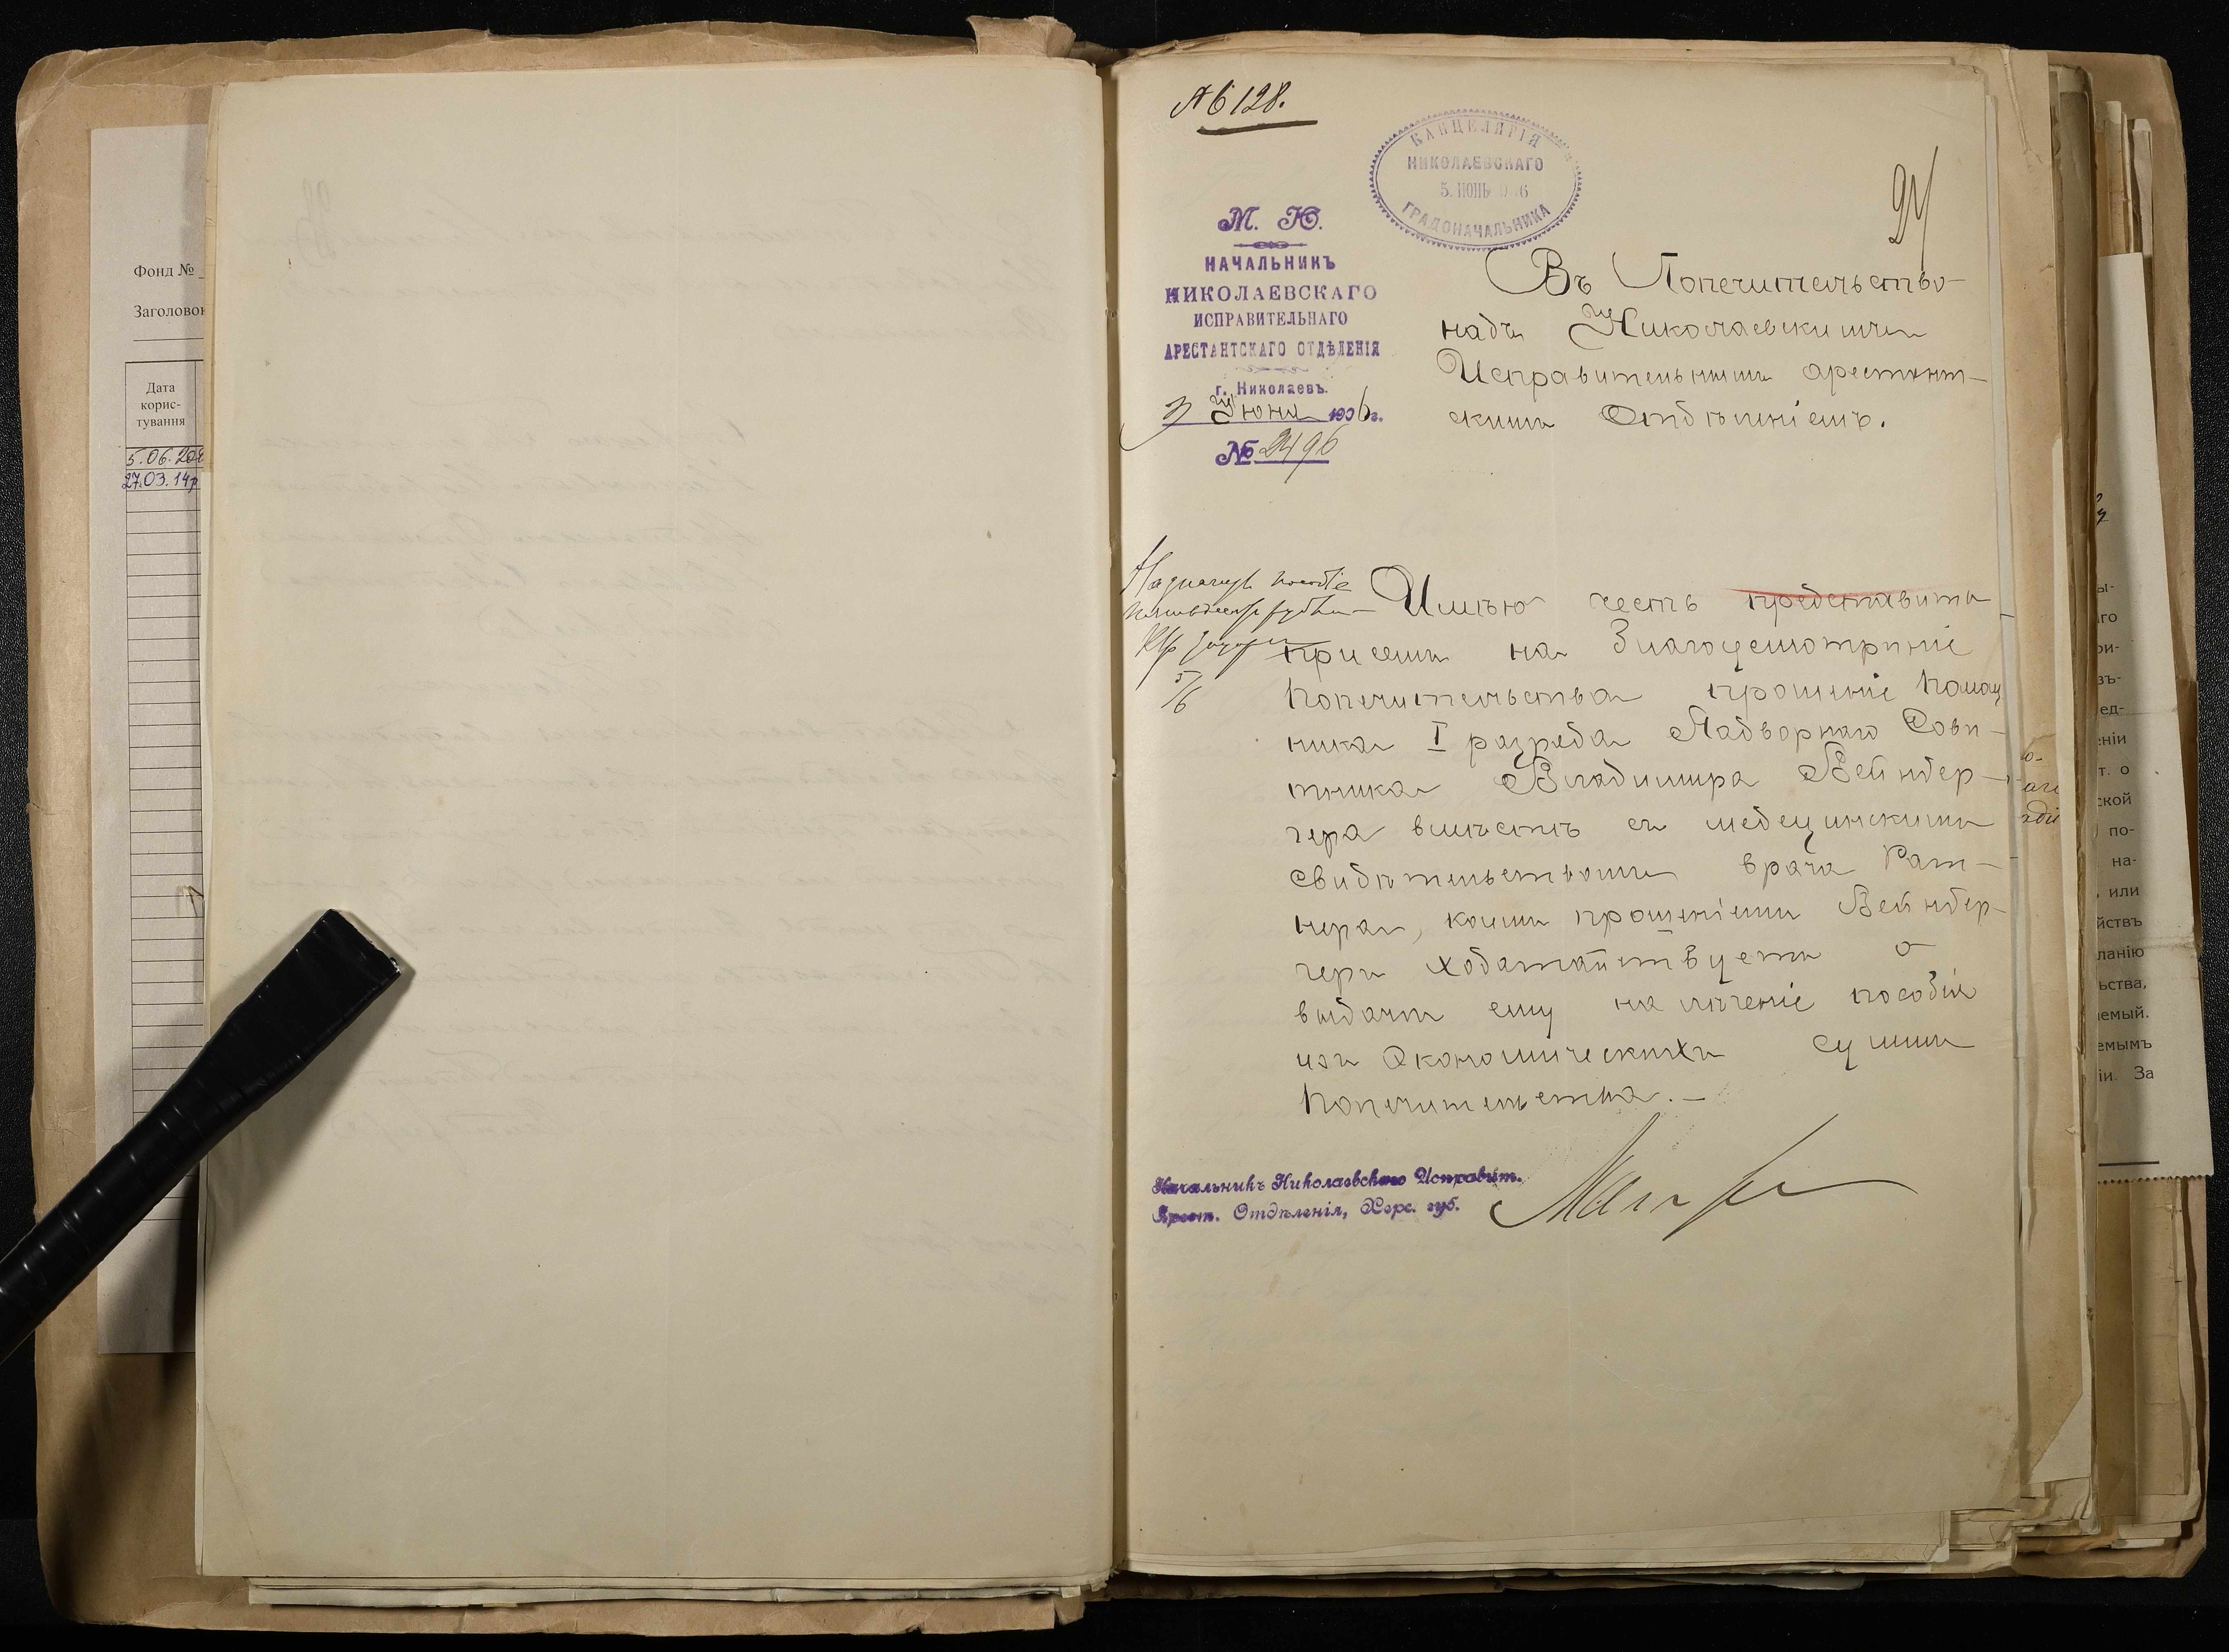 Фонд №
Заголовок
Дата
корис-
тування
5.06.20
27.03.14р
№ 128.
КАНЦЕЛЯРІЯ
НИКОЛАЕВСКАГО
5. ИЮНЬ 6
ГРАДОНАЧАЛЬНИКА
24
М. Ю.
НАЧАЛЬНИКЪ
НИКОЛАЕВСКАГО
ИСПРАВИТЕЛЬНАГО
АРЕСТАНТСКАГО ОТДѢЛЕНІЯ
г. Николаевъ.
3 Іюня 1906г.
№ 2496
Въ Попечительство
надъ Николаевскимъ
Исправительнымъ арестант-
скимъ Отдѣленіемъ.
Назначить пособіе
5/6
Имѣю честь представить
при семъ на Благоусмотрѣніе
Попечительства прошеніе Помощ
ника I разряда Надворнаго Совѣ-
тника Владимира Вейнбер-
гера вмѣстѣ съ медецинскимъ
свидѣтельствомъ врача Рат-
нера, коимъ прошеніемъ Вейнбер-
геръ ходатайствуетъ о
выдачѣ ему на лѣченіе пособія
изъ Экономическихъ суммъ
Попечительства.-
Начальникъ Николаевскаго Исправит.
Арест. Отдѣленія, Херс. губ.
ы-
го
ри-
зъ-
ед-
еніи
т. о
ской
по-
на-
или
йствъ
ланію
ьства,
емый.
емымъ
іи. За